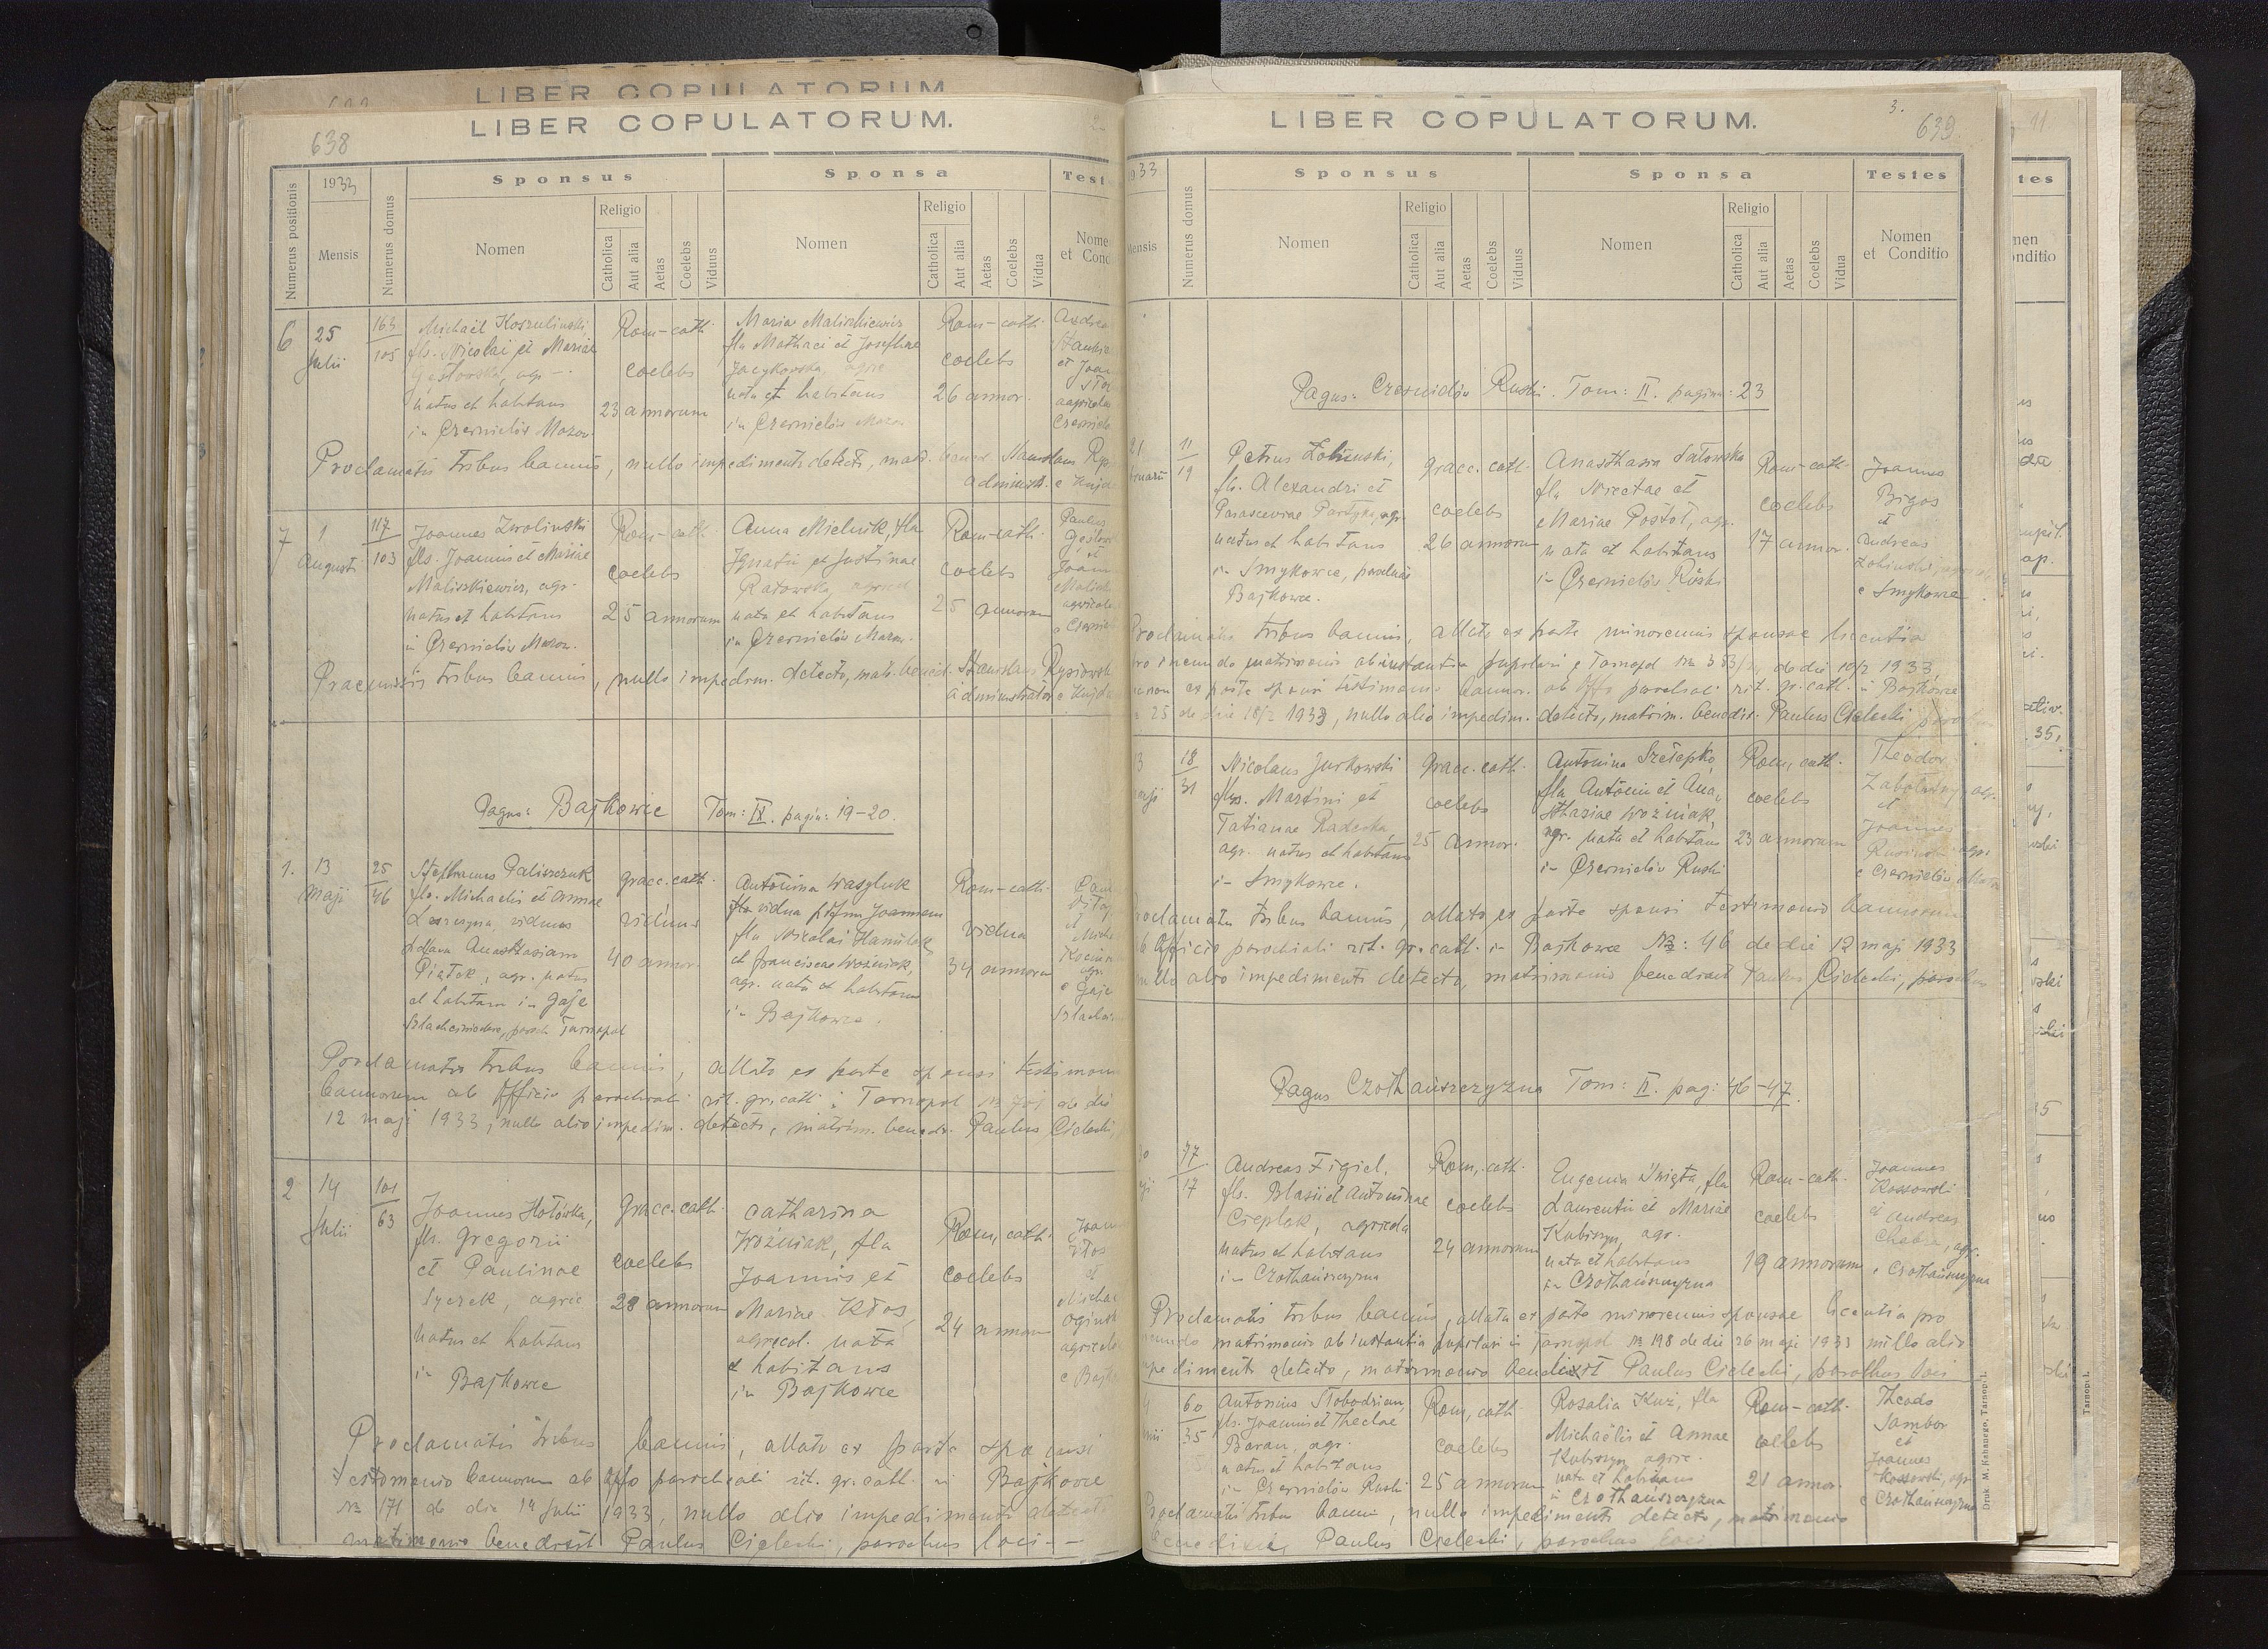 LIBER COPULATORUM
638
LIBER COPULATORUM.
Numerus positionis
1933
Mensis
Numerus domus
Sponsus
Nomen
Religio
Catholica
Aut alia
Aetas
Coelebs
Viduus
Sponsa
Nomen
Religio
Catholica
Aut alia
Aetas
Coelebs
Vidua
Test
Nome
et Cond
6 25 Julii
163
105
Michaël Koszulinski
fls. Nicolai et Mariae
agr.
natus et habitans
in Czernielów Mazow.
Rom-cath.
coelebs
23 annorum
Maria Maliszkiewicz
fla Mathaei et Josephae
nata et habitans
in Czernielów Mazow.
Rom-cath.
coelebs
26 annor.
Andrea
et Joan
agricolae
Czernielo
Proclamatis tribus bannis, nullo impedimento detecto, matr. bened. Stanislaus Ryp
administ. e
7 1 Augusti
117
103
Joannes Zwolinski
fls. Joannis et Mariae
Maliszkiewicz, agr.
natus et habitans
in Czernielów Mazow.
Rom-cath.
coelebs
25 annorum
Anna Mielnik, fla
Ignatii et Justinae
Ratowska, agricol.
nata et habitans
in Czernielów Mazow.
Rom-cath.
coelebs
25 annorum
Paulus
et
Joann
Praemissis tribus bannis, nullo impedim. detecto, matr. bened. Stanislaus
administrator e
Pagus: Bajkowce Tom: II. pagin: 19-20.
1. 13 Maji
25
46
Stephanus Paliszczuk
fls. Michaelis et Annae
viduus
Anasthasiam
Piątek, agr. natus
et habitans in Gaje
Szlachcinieckie, paroch. Tarnopol
graec. cath.
viduus
40 annor.
Antonina Wasyluk
vidua Joannem
fla Nicolai
et Franciscae Woźniak,
agr. nata et habitans
in Bajkowce.
Rom-cath.
vidua
34 annorum
agr.
e Gaje
Proclamatis tribus bannis, allato ex parte sponsi testimon
bannorum ab Officio parochiali rit. gr. cath. in Tarnopol № 701 de die
12 maji 1933, nullo alio impedim. detecto, matrim. bened. Paulus Cielecki,
2 14 Julii
101
63
Joannes Hołówka,
fls. Gregorii
et Paulinae
Syczek, agric
natus et habitans
in Bajkowce
graec. cath.
coelebs
28 annorum
Catharina
Woźniak, fla
Joannis et
Mariae Kłos,
agricol. nata
et habitans
in Bajkowce
Rom, cath.
coelebs
24 annorum
Joann
et
agricola
e Bajk
Proclamatis tribus bannis, allato ex parte sponsi
testimonio bannorum ab Offo parochiali rit. gr. cath. in Bajkowce
№ 171 de die 14 Julii 1933, nullo alio impedimento detecto
matrimonio benedixit Paulus Cielecki, parochus loci
LIBER COPULATORUM.
3.
639.
33
ensis
Numerus domus
Sponsus
Nomen
Religio
Catholica
Aut alia
Aetas
Coelebs
Viduus
Sponsa
Nomen
Religio
Catholica
Aut alia
Aetas
Coelebs
Vidua
Testes
Nomen
et Conditio
Pagus: Czernielów Ruski. Tom: II. pagina: 23
21
11
19
Petrus Łobinski,
fls. Alexandri et
Parasceviae Partyka, agr.
natus et habitans
in Smykowce, parochiae
Bajkowce.
graec. cath.
coelebs
26 annorum
Anasthasia Satowska
fla Nicetae et
Mariae Postół, agr.
nata et habitans
in Czernielów Ruski
Rom-cath.
coelebs
17 annor.
Joannes
Bigos
et
Andreas
Łobinski
e Smykowce
Proclamatis tribus bannis, allata ex parte minorennis sponsae licentia
pro ineundo matrimonio ab instantia pupilari e Tarnopol № de die 10/2 1933,
ex parte sponsi testimonio bannor. ab Offo parochiali rit. gr. cath. in Bajkowce
25 de die 18/2 1933, nullo alio impedim. detecto, matrim. benedix. Paulus Cielecki
18
31
Nicolaus Jurkowski
fls. Martini et
Tatianae Radecka,
agr. natus et habitans
in Smykowce.
graec. cath.
coelebs
25 annor.
Antonina Szełepko,
fla Antonii et Ana,
sthasiae Woźniak,
agr. nata et habitans
in Czernielów Ruski
Rom, cath.
coelebs
23 annorum
Theodor
Zabolotny, agr.
et
Joannes
e Czernielów
Proclamatis tribus bannis, allato ex parte sponsi testimonio bannorum
ab Officio parochiali rit. gr. cath. in Bajkowce №: 46 de die 12 maji 1933
nullo alio impedimento detecto, matrimonio benedixit Paulus Cielecki, parochus
Pagus Czothańszczyzna Tom: II. pag: 46-47.
77
17
Andreas Figiel,
fls. Blasii et Antoninae
Cieplak, agricola
natus et habitans
in Czothańszczyzna
Rom, cath.
coelebs
24 annorum
Eugenia Święta, fla
Laurentii et Mariae
Kubiszyn, agr.
nata et habitans
in Czothańszczyzna
Rom-cath.
coelebs
19 annorum
Joannes
Kossowski
et Andreas
agr.
e Czothańszczyzna
Proclamatis tribus bannis, allata ex parte minorennis sponsae licentia pro
ineundo matrimonio ab instantia pupilari in Tarnopol № 198 de die 26 maji 1933 nullo alio
impedimento detecto, matrimonio benedixit Paulus Cielecki, parochus loci
60
35
Antonius Słobodzian,
fls. Joannis et Theclae
Baran, agr.
natus et habitans
in Czernielów Ruski
Rom, cath.
coelebs
25 annorum
Rosalia Kuź, fla
Michaëlis et Annae
Kubiszyn agric.
nata et habitans
in Czothańszczyzna
Rom-cath.
coelebs
21 annor.
Theodo
Sambor
et
Joannes
Kossowski, agr.
e Czothańszczyzna
Proclamatis tribus bannis, nullo impedimento detecto, matrimonio
benedixit, Paulus Cielecki, parochus loci
Druk. M. Kahanego, Tarnopol.
11.
tes
men
onditio
Tarnopol.